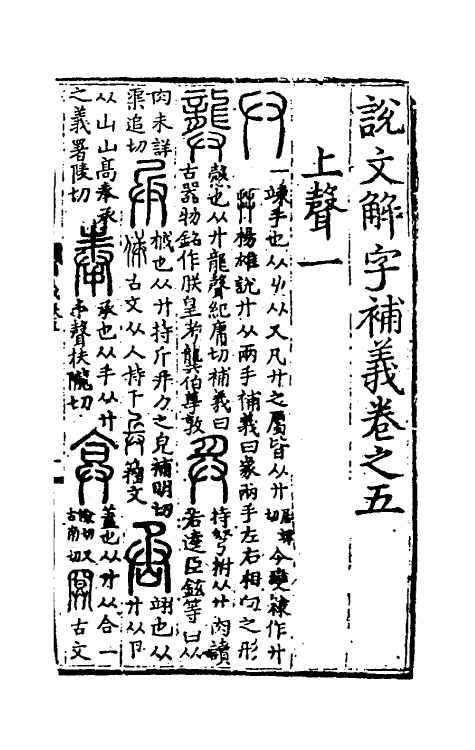 說文解字補義卷之五
上聲一
廾
竦手也从𠂇从又凡廾之屬皆从廾居竦切今變隸作廾
楊雄說廾从兩手補義曰象兩手左右相向之形
龏
愨也从廾龍聲紀庸切補義曰
古器物銘作朕皇考龏伯尊敦
持弩拊从廾肉讀
若逵臣鉉等曰从
肉未詳
渠追切
兵
械也从廾持斤并力之皃補明切
古文从人持干 籒文
丞
翊也从
廾从卩
从山山高奉承
之義署陵切
奉
承也从手从廾
丰聲扶隴切
弇
蓋也从廾从合一
切又古南切 古文